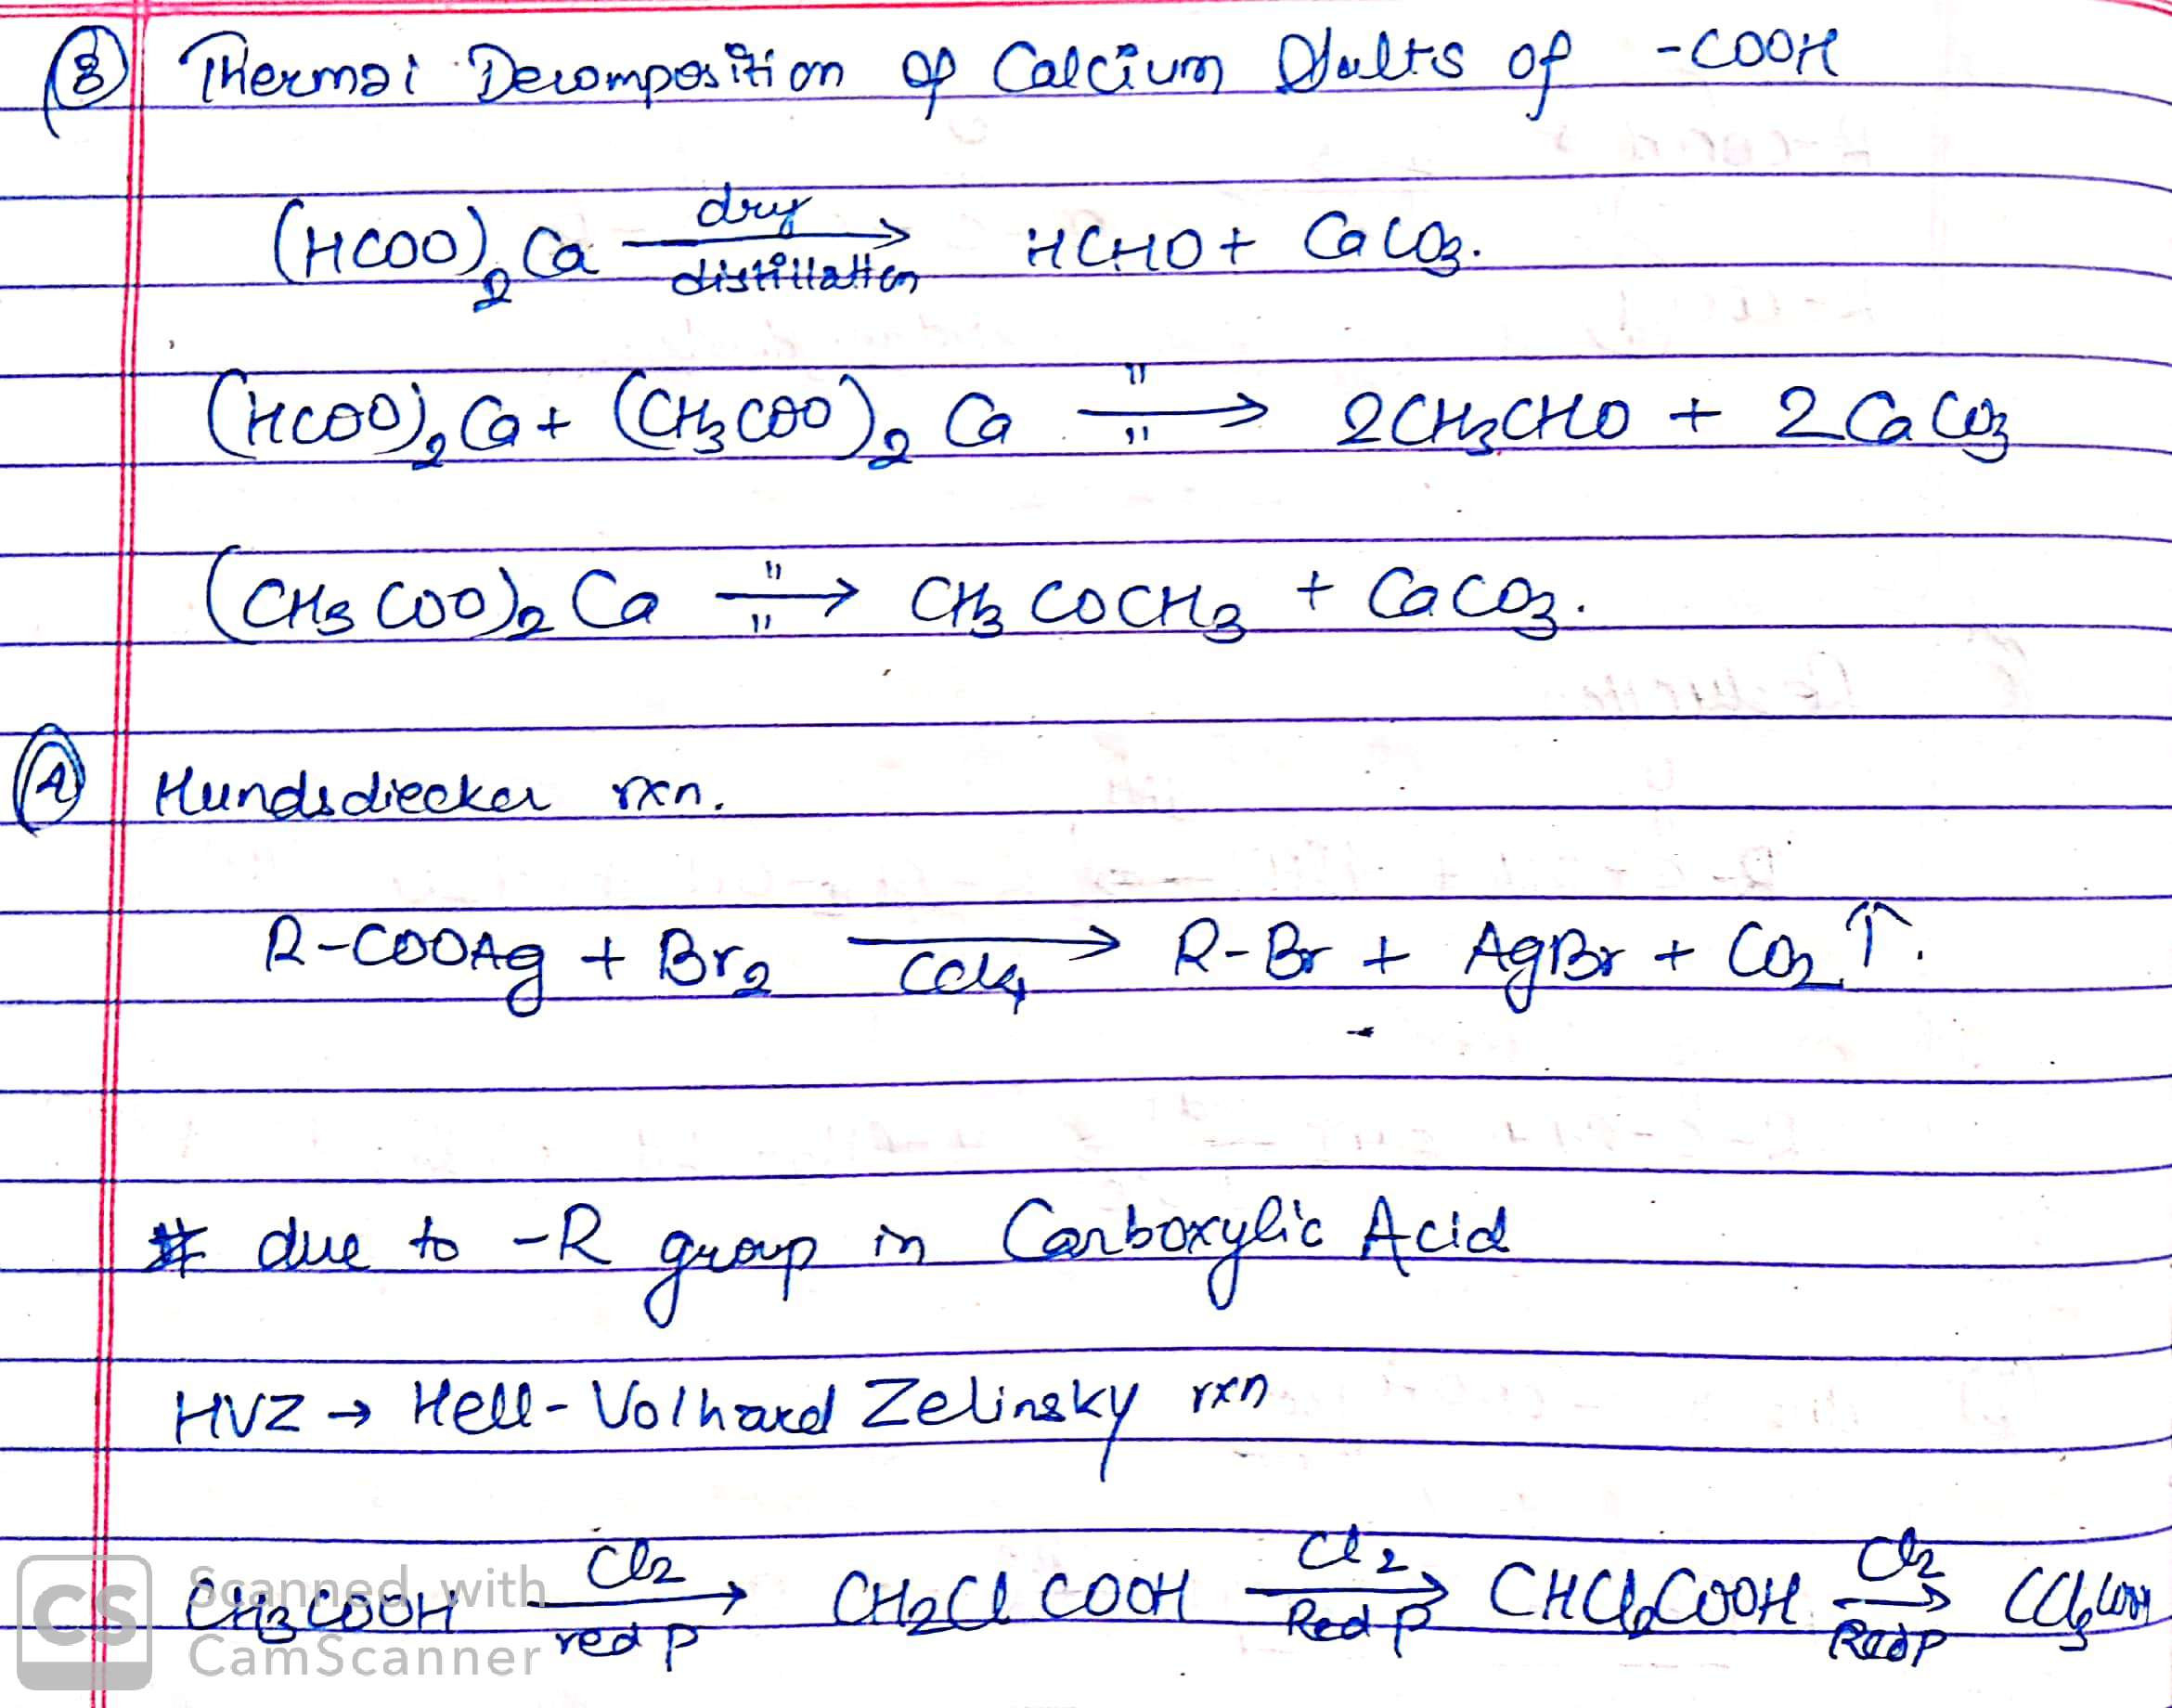 ③ Thermal Decomposition of Calcium Salts of -COOH
(HCOO)₂Ca dry distillation → HCHO + CaCO₃.
(HCOO)₂Ca + (CH₃COO)₂Ca " " → 2CH₃CHO + 2CaCO₃
(CH₃COO)₂Ca " " → CH₃COCH₃ + CaCO₃.
④ Hundsdiecker rxn.
R-COOAg + Br₂ → CCl₄ R-Br + AgBr + CO₂↑.
# due to -R group in Carboxylic Acid
HVZ → Hell-Volhard Zelinsky rxn
CH₃COOH Cl₂ → red P CH₂ClCOOH Cl₂ → Red P CHCl₂COOH Cl₂ → Red P CCl₃COOH
CS Scanned with
CamScanner